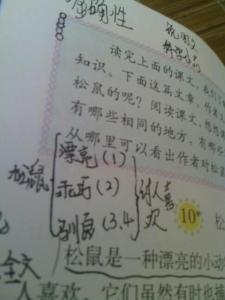 准确性
说明文
读完上面的课文，我们了
知识。下面这篇文章，作者又
松鼠的呢？阅读课文，想想课
有哪些相同的地方，有哪些
从哪里可以看出作者对松鼠
漂亮(1)
松鼠 乖巧(2) 讨人喜欢
驯良(3,4)
10*
松鼠是一种漂亮的小动
全文
人喜欢。它们虽然有时也捕